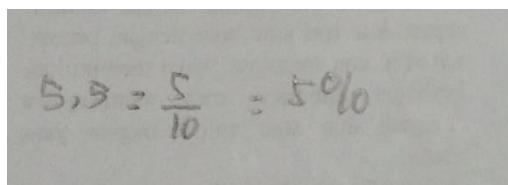 5,5 = 5/10 = 5%